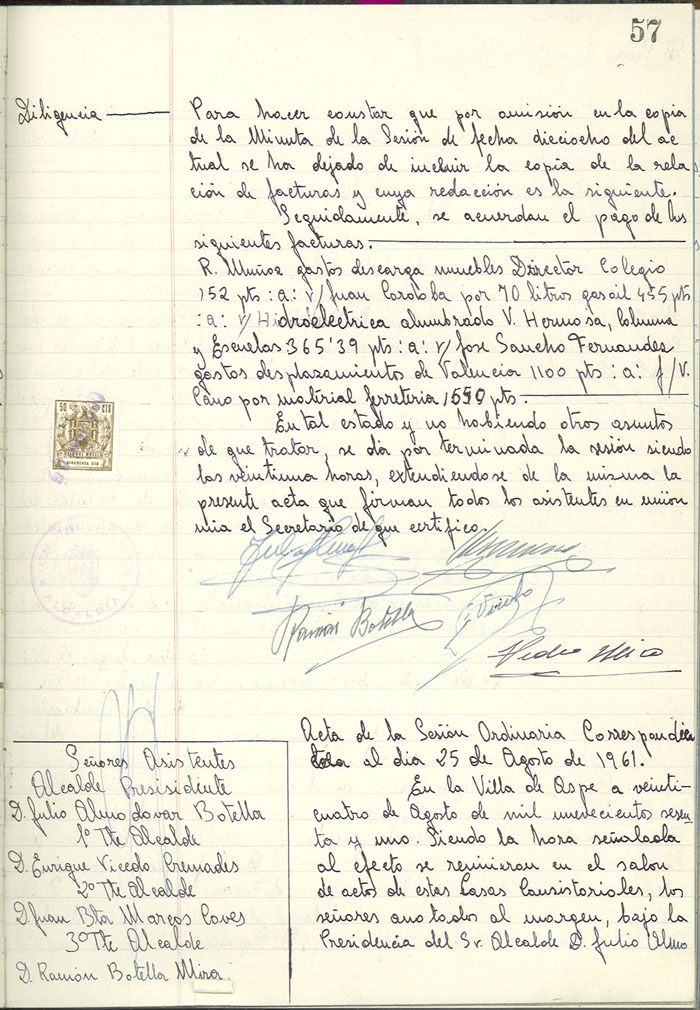 57
Diligencia
Para hacer constar que por omisión en la copia
de la Minuta de la Sesión de fecha dieciocho del ac
tual se ha dejado de incluir la copia de la rela
ción de facturas y cuya redacción es la siguiente.
Seguidamente, se acuerdan el pago de los
siguientes facturas.
R. Muñoz gastos descarga muebles Director Colegio
152 pts :a: v/ Juan Cordoba por 70 litros gasoil 455 pts
:a: v/ Hidroelectrica alumbrado V. Hermosa, Columna
y Escuelas 365'39 pts :a: v/ Jose Sancho Fernandez
gastos desplazamientos de Valencia 1100 pts :a: f/ V.
Cano por material ferreteria 1550 pts.
En tal estado y no habiendo otros asuntos
de que tratar, se da por terminada la sesión siendo
las veintiuna horas, extendiendose de la misma la
presente acta que firman todos los asistentes en unión
mia el Secretario de que certifico.
50 CTS
CINCUENTA CTS
Ramón Botella
E. Vicedo
Pedro Mira
Señores Asistentes
Alcalde Presisidiente
D. Julio Almodovar Botella
1º Tte Alcalde
D. Enrique Vicedo Cremades
2º Tte Alcalde
D. Juan Bta Marcos Caves
3º Tte Alcalde
D. Ramón Botella Mira.
Acta de la Sesión Ordinaria Correspondien
te al dia 25 de Agosto de 1961.
En la Villa de Aspe a veinti-
cuatro de Agosto de mil unevecientos sesen
ta y uno. Siendo la hora señalada
al efecto se reunieron en el salon
de actos de estas Casas Consistoriales, los
señores anotados al margen, bajo la
Presidencia del Sr. Alcalde D. Julio Almo